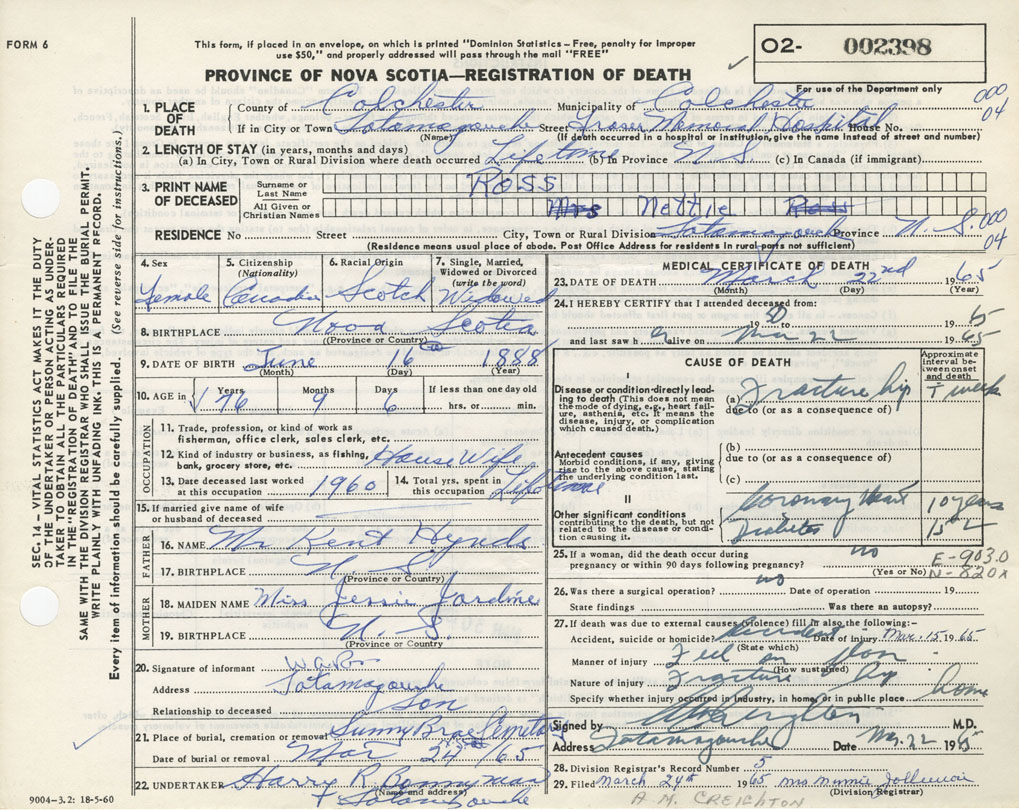 FORM 6
This form, if placed in an envelope, on which is printed "Dominion Statistics – Free, penalty for improper
use $50," and properly addressed will pass through the mail "FREE"
O2- 002398
PROVINCE OF NOVA SCOTIA—REGISTRATION OF DEATH
For use of the Department only
000
04
1. PLACE OF DEATH
County of Colchester Municipality of Colchester
If in City or Town Tatamagouche Street Memorial Hospital House No.
(Name) (If death occurred in a hospital or institution, give its name instead of street and number)
2. LENGTH OF STAY (in years, months and days)
(a) In City, Town or Rural Division where death occurred Lifetime (b) In Province N S (c) In Canada (if immigrant)
3. PRINT NAME OF DECEASED
Surname or Last Name ROSS
All Given or Christian Names Mrs Nettie Ross
RESIDENCE No Street City, Town or Rural Division Tatamagouche Province N. S. 000
04
(Residence means usual place of abode. Post Office Address for residents in rural parts not sufficient)
4. Sex Female
5. Citizenship (Nationality) Canadian
6. Racial Origin Scotch
7. Single, Married, Widowed or Divorced (write the word) Widowed
8. BIRTHPLACE Nova Scotia
(Province or Country)
9. DATE OF BIRTH June 16 1888
(Month) (Day) (Year)
10. AGE in Years 76 Months 9 Days 6 If less than one day hrs. or min.
OCCUPATION
11. Trade, profession, or kind of work as fisherman, office clerk, sales clerk, etc.
12. Kind of industry or business, as fishing, bank, grocery store, etc. House Wife
13. Date deceased last worked at this occupation 1960
14. Total yrs. spent in this occupation Lifetime
15. If married give name of wife or husband of deceased
FATHER
16. NAME Mr Kent Hynds
17. BIRTHPLACE N S
(Province or Country)
MOTHER
18. MAIDEN NAME Miss Jessie Jardine
19. BIRTHPLACE N. S.
(Province or Country)
20. Signature of informant
Address Tatamagouche
Relationship to deceased Son
21. Place of burial, cremation or removal Sunny Brae Cemetery
Date of burial or removal Mar 24 /65
22. UNDERTAKER Harry R Bonnyman
(Name and address)
Tatamagouche
9004-3.2: 18-5-60
MEDICAL CERTIFICATE OF DEATH
23. DATE OF DEATH March 22nd 1965
(Month) (Day) (Year)
24. I HEREBY CERTIFY that I attended deceased from:
1950 to 1965
and last saw her alive on Mar 22 1965
CAUSE OF DEATH
Approximate interval between onset and death
I
Disease or condition directly leading to death (This does not mean the mode of dying, e.g., heart failure, asthenia, etc. It means the disease, injury, or complication which caused death.)
(a) Fracture hip 1 week
due to (or as a consequence of)
Antecedent causes
Morbid conditions, if any, giving rise to the above cause, stating the underlying condition last.
(b)
due to (or as a consequence of)
(c)
II
Other significant conditions
contributing to the death, but not related to the disease or condition causing it.
Coronary Heart 10 years
Diabetes 15
25. If a woman, did the death occur during pregnancy or within 90 days following pregnancy? no
(Yes or No)
E-903.0
N-820X
26. Was there a surgical operation? no Date of operation 19
State findings Was there an autopsy?
27. If death was due to external causes (violence) fill in also the following:–
Accident, suicide or homicide? Accident Date of injury Mar. 15 1965
(State which)
Manner of injury Fell on floor
(How sustained)
Nature of injury Fracture hip
Specify whether injury occurred in industry, in home or in public place home
Signed by M.D.
Address Tatamagouche Date Mar. 22 1965
28. Division Registrar's Record Number 5
29. Filed March 24th 1965 Mrs Minnie
(Division Registrar)
A. M. CREIGHTON
SEC. 14 – VITAL STATISTICS ACT MAKES IT THE DUTY
OF THE UNDERTAKER OR PERSON ACTING AS UNDER-
TAKER TO OBTAIN ALL THE PARTICULARS REQUIRED
IN THE "REGISTRATION OF DEATH" AND TO FILE THE
SAME WITH THE DIVISION REGISTRAR WHO SHALL ISSUE THE BURIAL PERMIT.
WRITE PLAINLY WITH UNFADING INK. THIS IS A PERMANENT RECORD.
Every item of information should be carefully supplied. (See reverse side for instructions.)